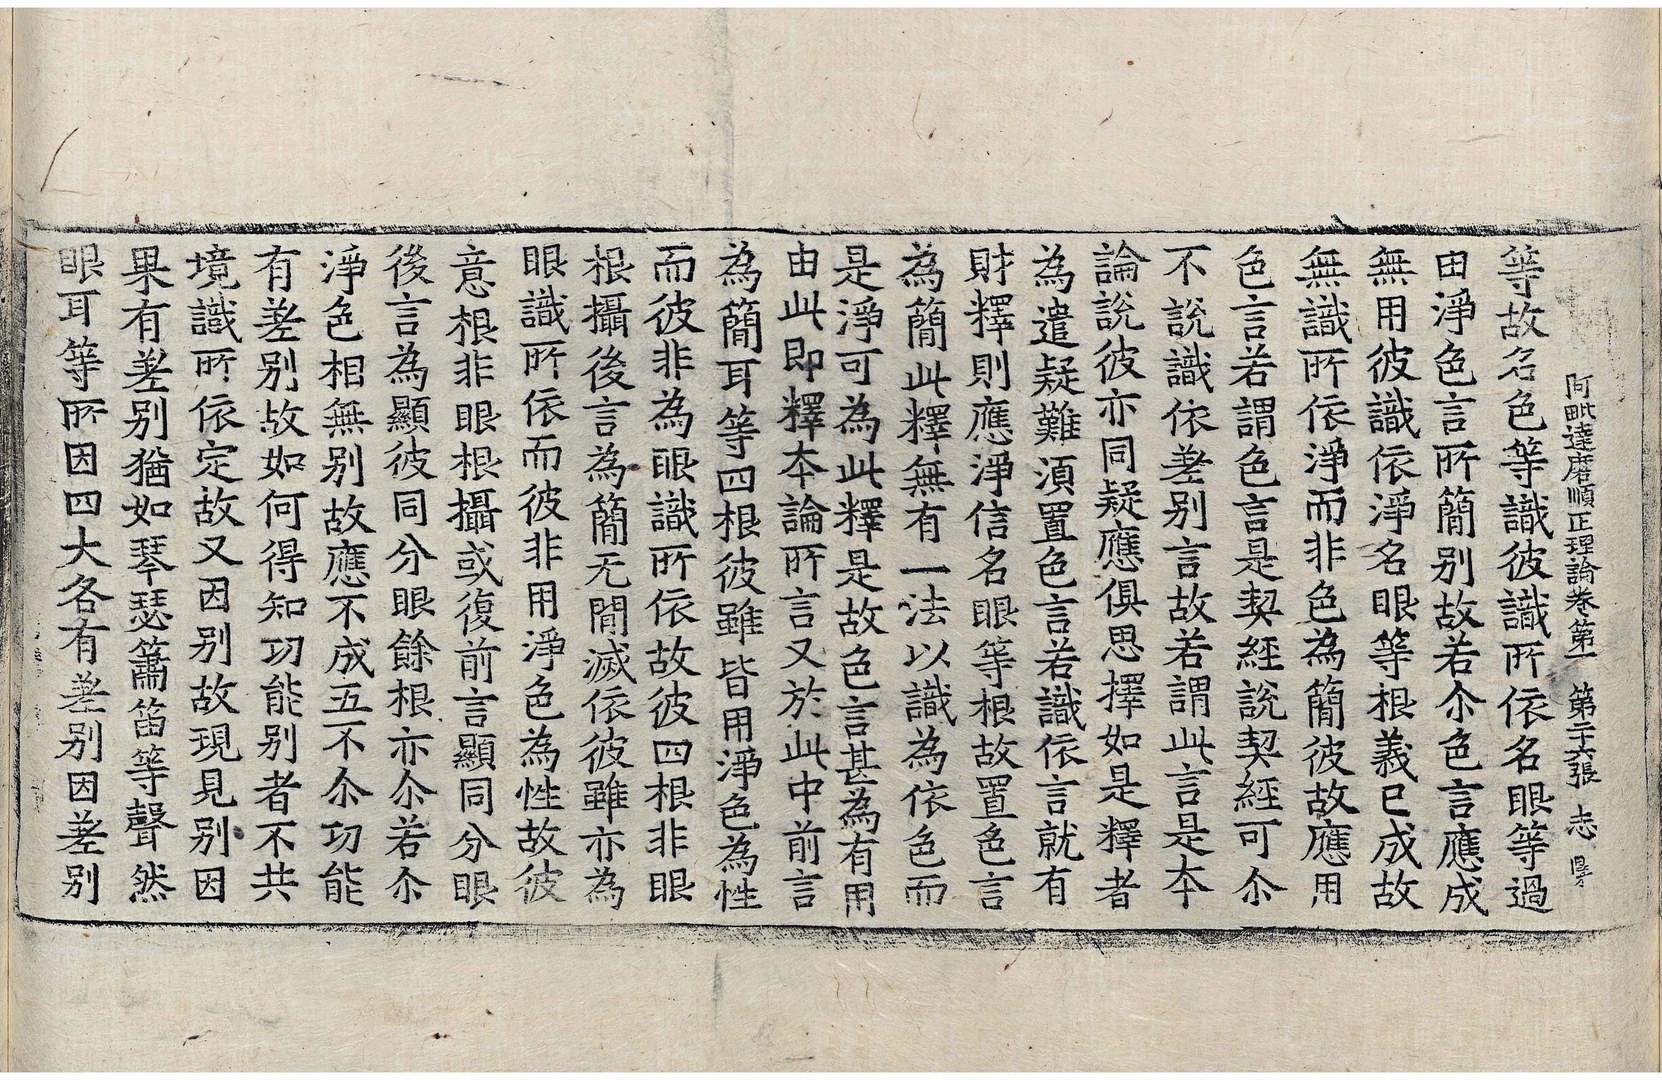 阿毗達磨順正理論卷第一　第二十六張　志
等故名色等識彼識所依名眼等過
由淨色言所簡別故若尒色言應成
無用彼識依淨名眼等根義已成故
無識所依淨而非色為簡彼故應用
色言若謂色言是契經說契經可尒
不說識依差別言故若謂此言是本
論說彼亦同疑應俱思擇如是釋者
為遣疑難湏置色言若識依言就有
財釋則應淨信名眼等根故置色言
為簡此釋無有一法以識為依色而
是淨可為此釋是故色言甚為有用
由此即釋本論所言又於此中前言
為簡耳等四根彼雖皆用淨色為性
而彼非為眼識所依故彼四根非眼
根攝後言為簡无間滅依彼雖亦為
眼識所依而彼非用淨色為性故彼
意根非眼根攝或復前言顯同分眼
後言為顯彼同分眼餘根亦尒若尒
淨色相無別故應不成五不尒功能
有差別故如何得知功能別者不共
境識所依定故又因別故現見別因
果有差別猶如琴瑟簫笛等聲然
眼耳等所因四大各有差別因差別